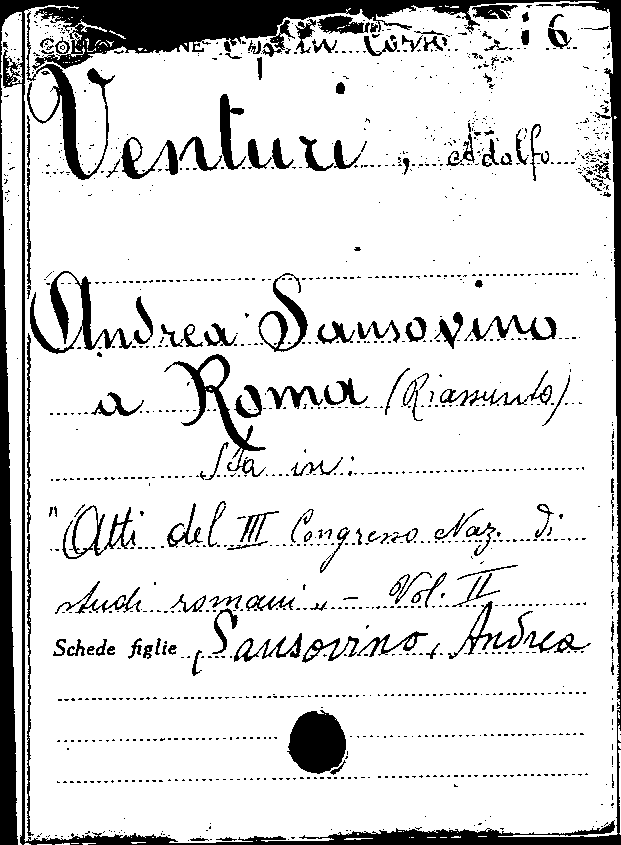 COLLOCAZIONE Op. in corso i 6
Venturi, Adolfo
Andrea Sansovino
a Roma (Riassunto)
Sta in:
"Atti del III Congresso Naz. di
studi romani„ – Vol. II
Schede figlie Sansovino, Andrea